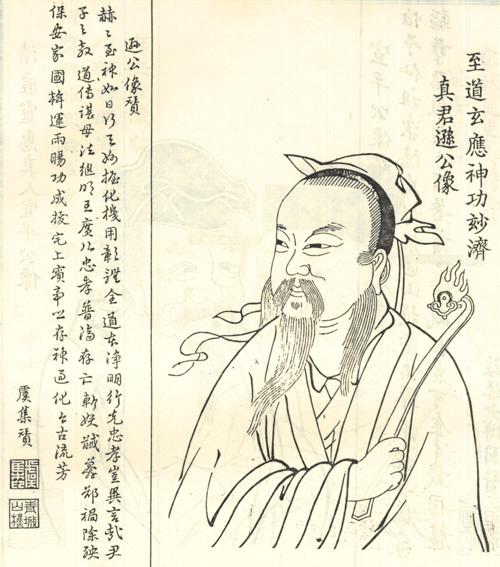 至道玄應神功妙濟
真君遜公像
遜公像贊
赫〻至神如日行天握化機用彰證全道在淨明行先忠孝豈異言哉
子之教道傳諶母法繼明王度以忠孝普濟存亡斬妖馘禍除殃
保安家國斡運雨暘功成拔宅上賓帝以存神過化今古流芳
虞集贊
青城山樵